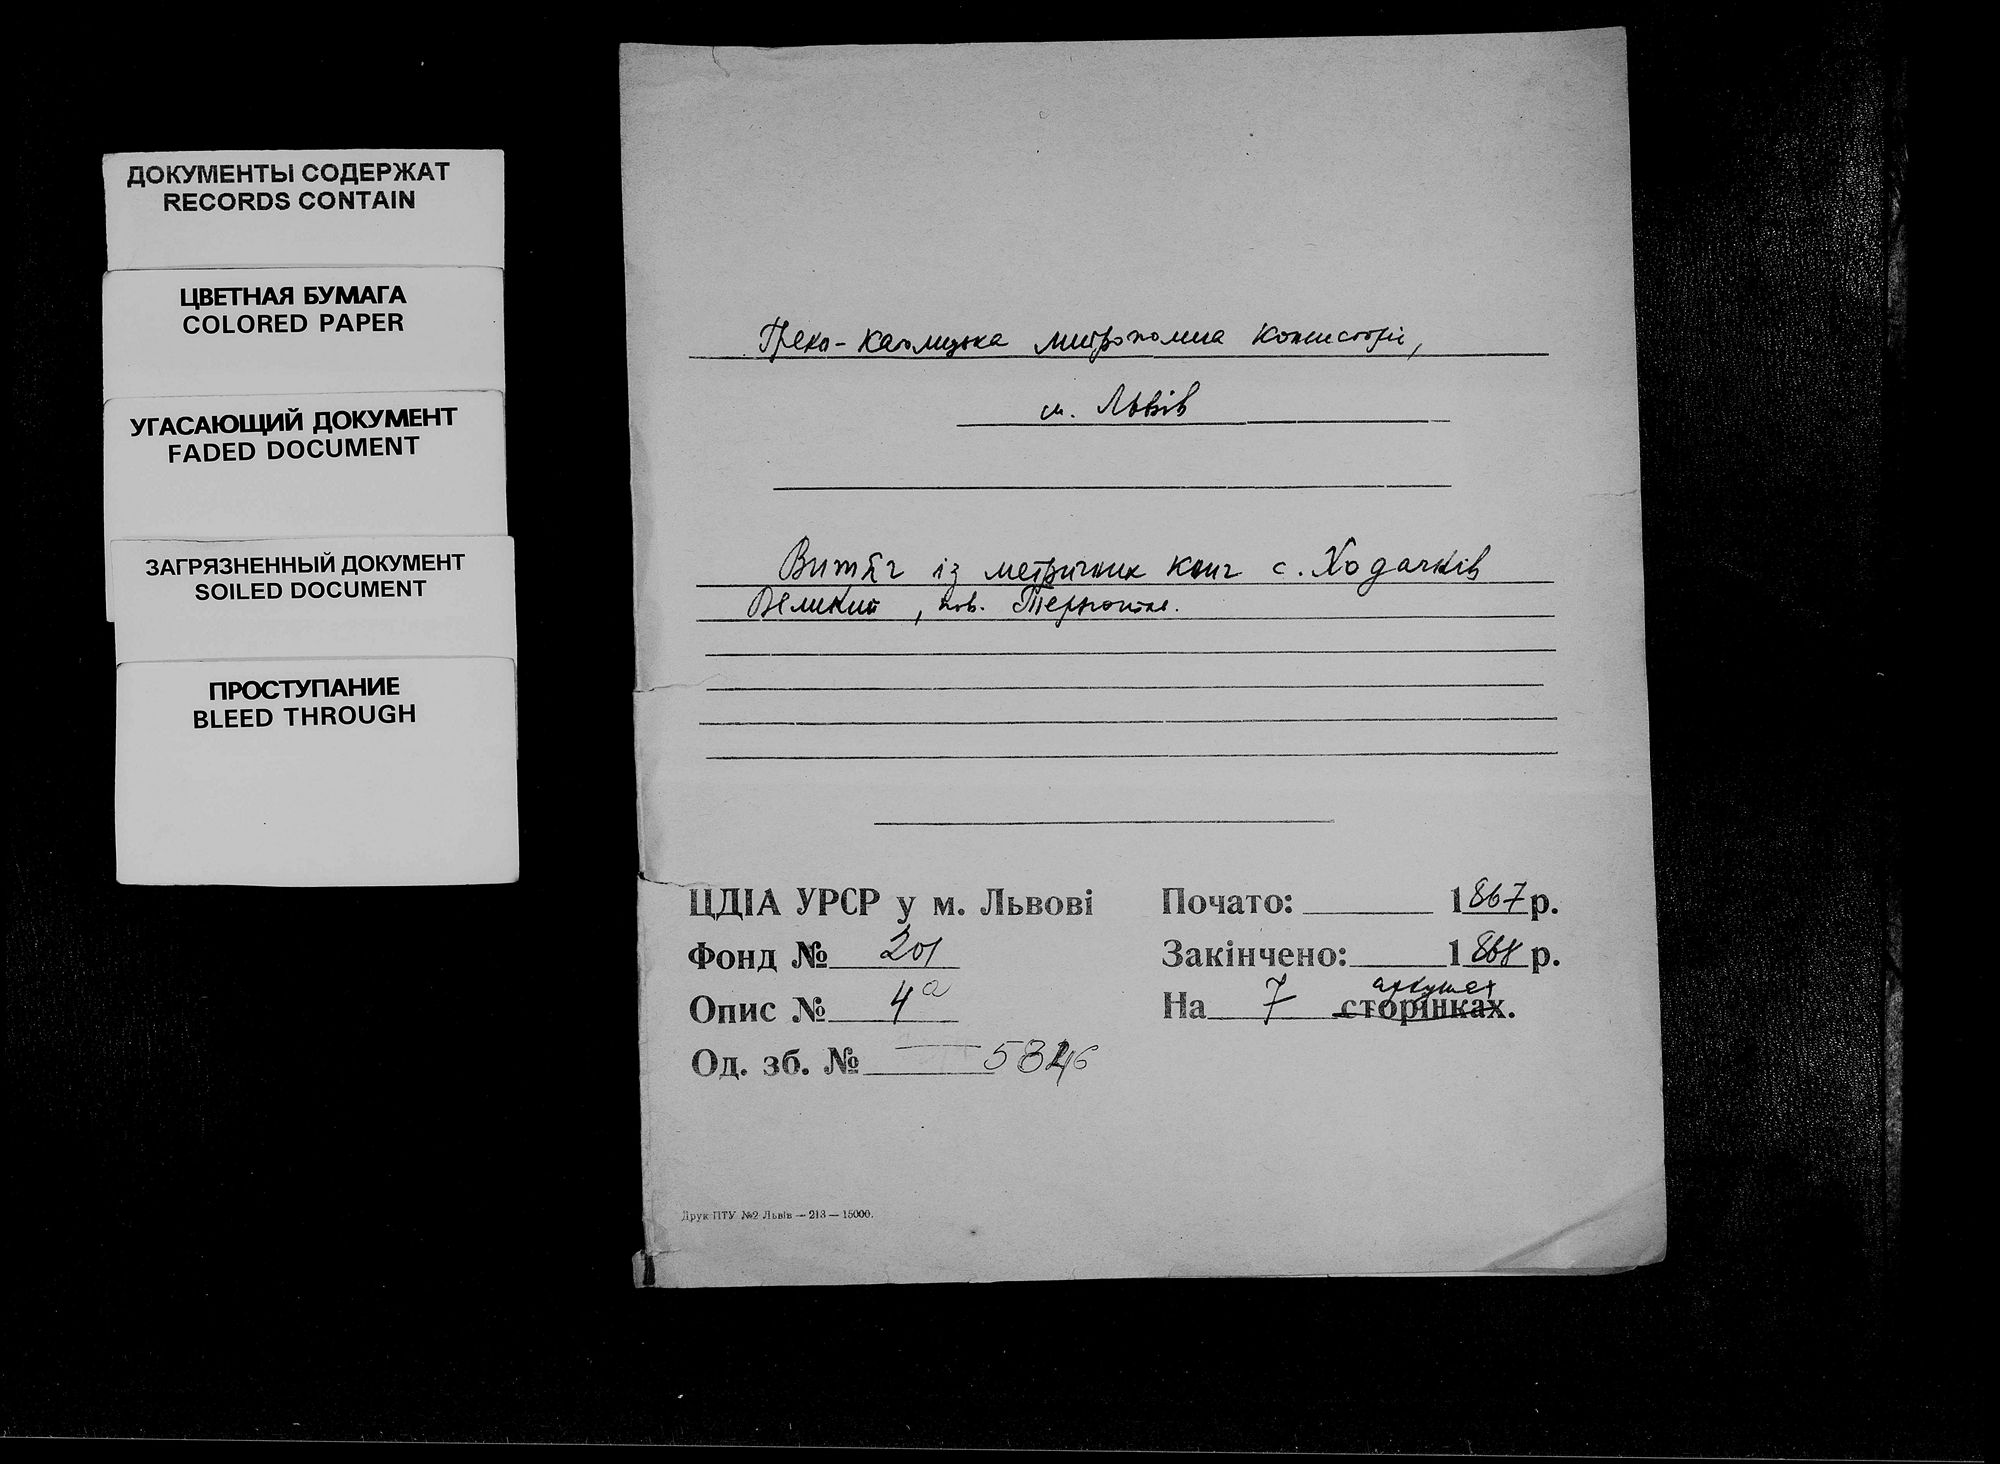 ДОКУМЕНТЫ СОДЕРЖАТ
RECORDS CONTAIN
ЦВЕТНАЯ БУМАГА
COLORED PAPER
УГАСАЮЩИЙ ДОКУМЕНТ
FADED DOCUMENT
ЗАГРЯЗНЕННЫЙ ДОКУМЕНТ
SOILED DOCUMENT
ПРОСТУПАНИЕ
BLEED THROUGH
Греко-католицька митрополича консисторія,
м. Львів
Витяг із метричних книг с. Ходачків
Великий, пов. Тернопіль.
ЦДІА УРСР у м. Львові
Фонд № 201
Опис № 4а
Од. зб. №
Почато: 1867 р.
Закінчено: 1868 р.
аркушах
На 7 сторінках.
Друк ПТУ №2 Львів — 213 — 15000.